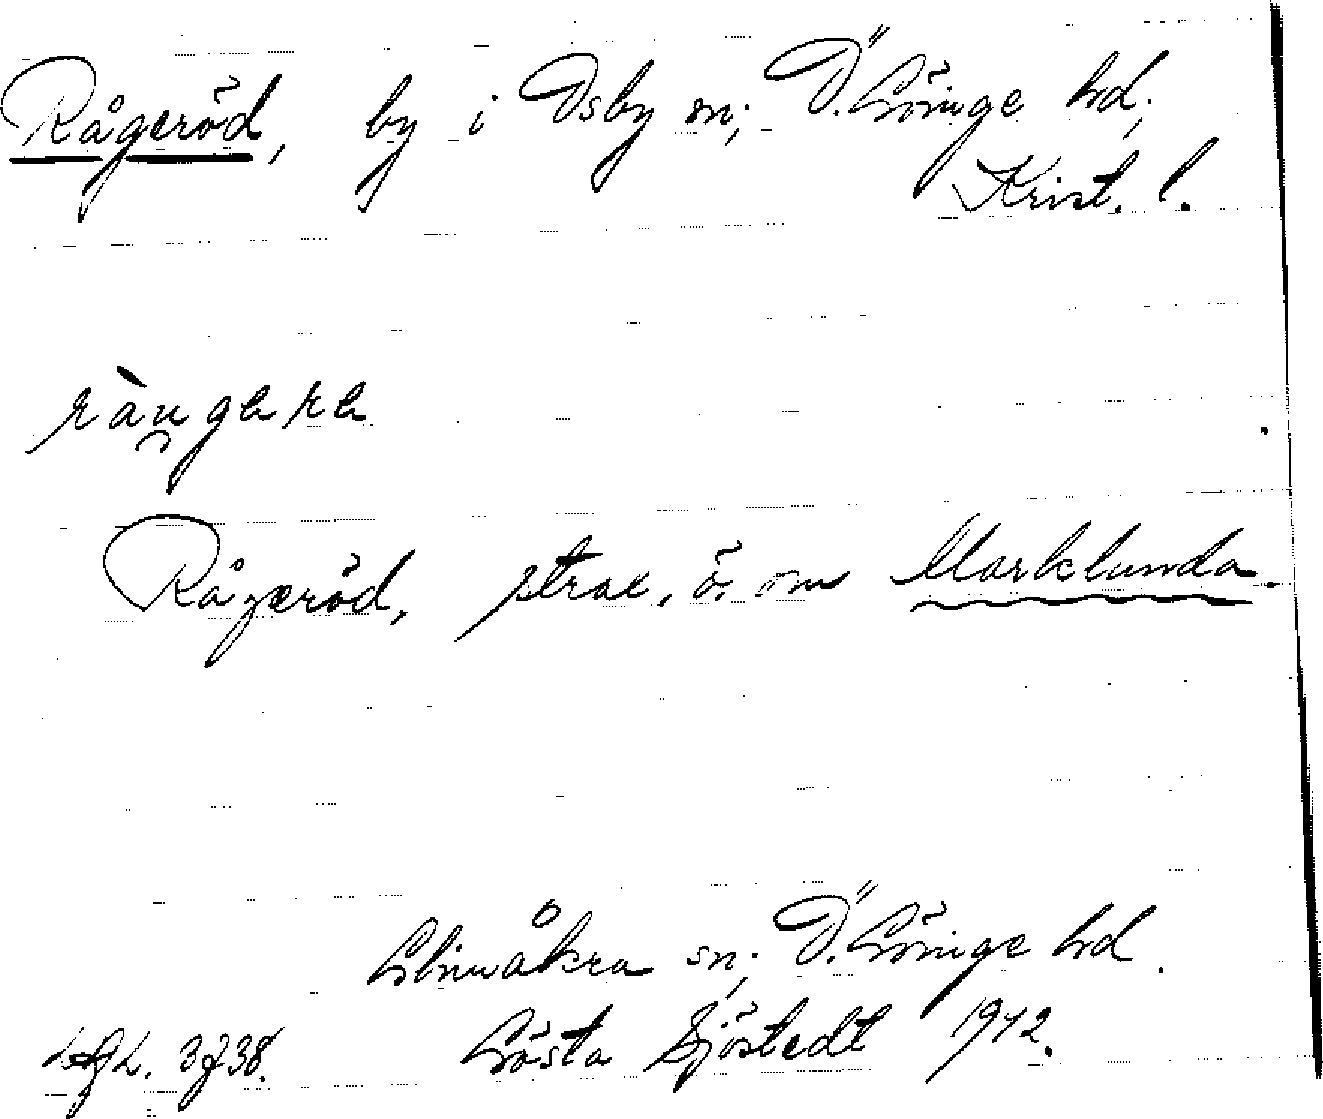 Rågeröd, by i Osby sn; Ö. Göinge hd;
Krist. l.
Rågeröd, strax ö. om Marklunda.
Glimåkra sn; Ö. Göinge hd.
Gösta Sjöstedt 1942.